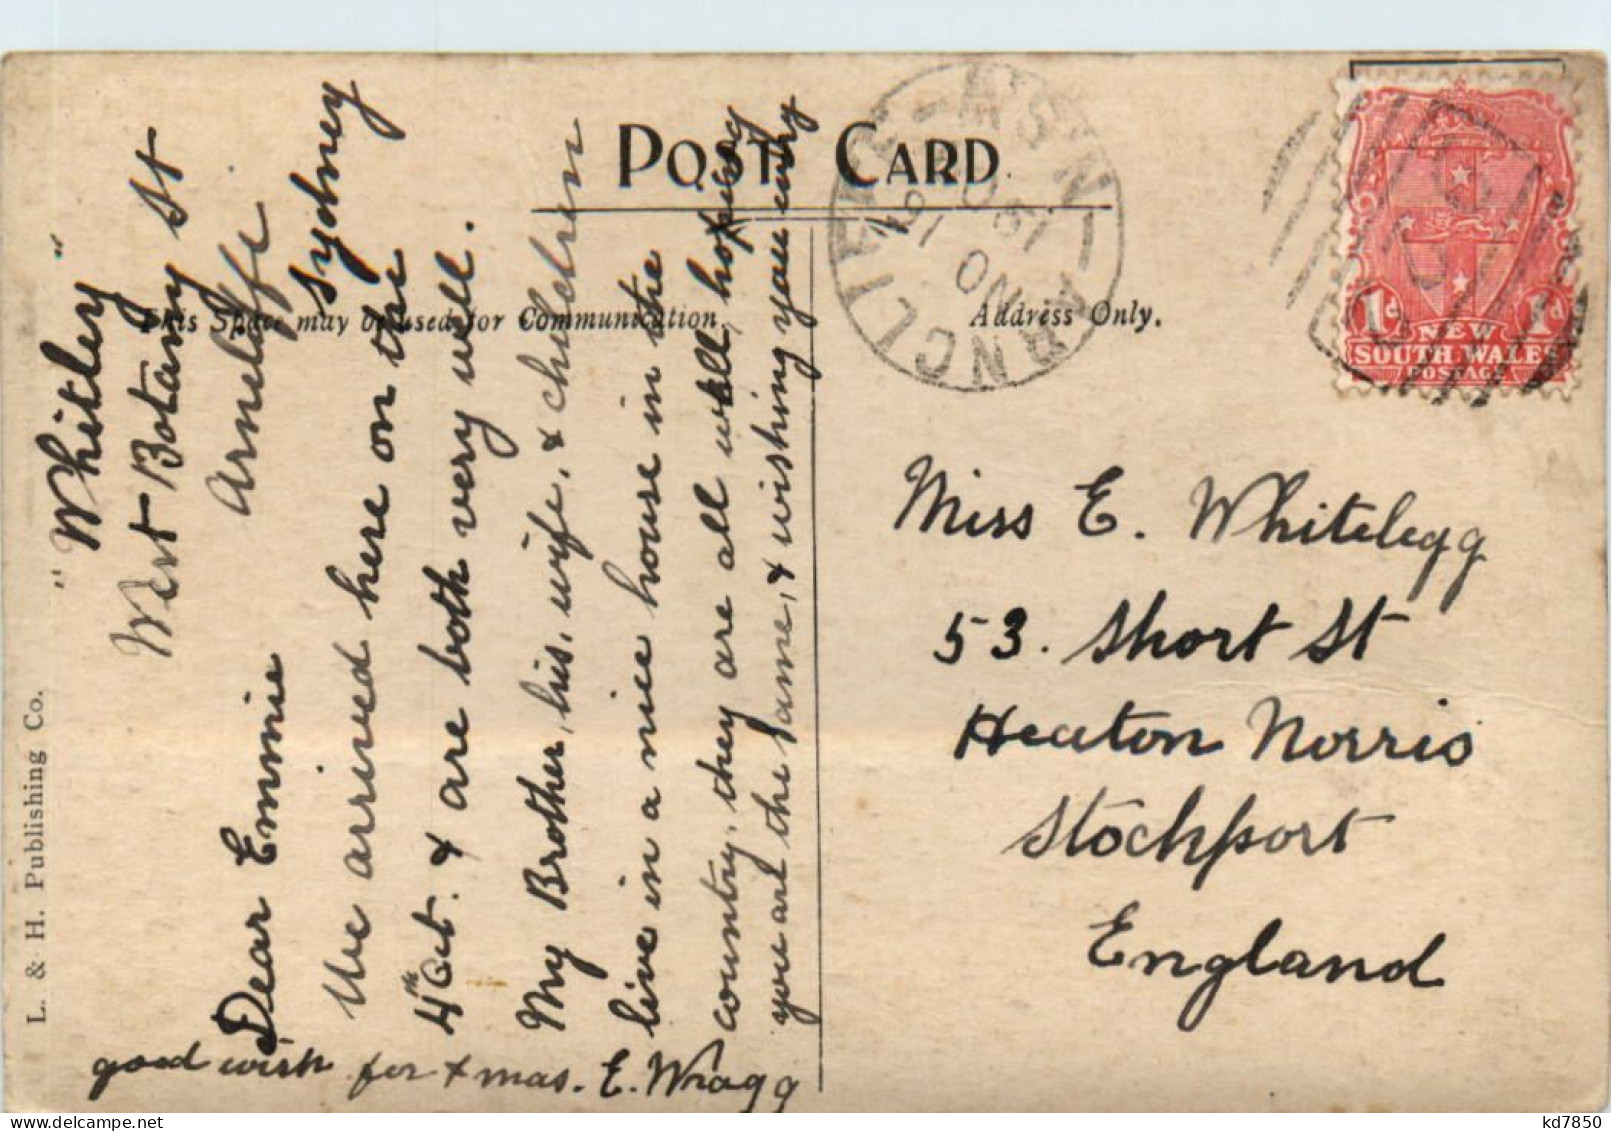 POST CARD
This Space may be used for Communication.
Address Only.
L. & H. Publishing Co.
"Whitley"
West Botany St
Arncliffe
Sydney
Dear Emmie
We arrived here on the
4th Oct. & are both very well.
My Brother, his, wife, & children
live in a nice house in the
country, they are all well, hoping
you are the same, & wishing you every
good wish for Xmas. E. Wragg
Miss E. Whitelegg
53. Short St
Heaton Norris
Stockport
England
ARNCLIFFE
N.S.W
1d 1d
NEW
SOUTH WALES
POSTAGE
kd7850